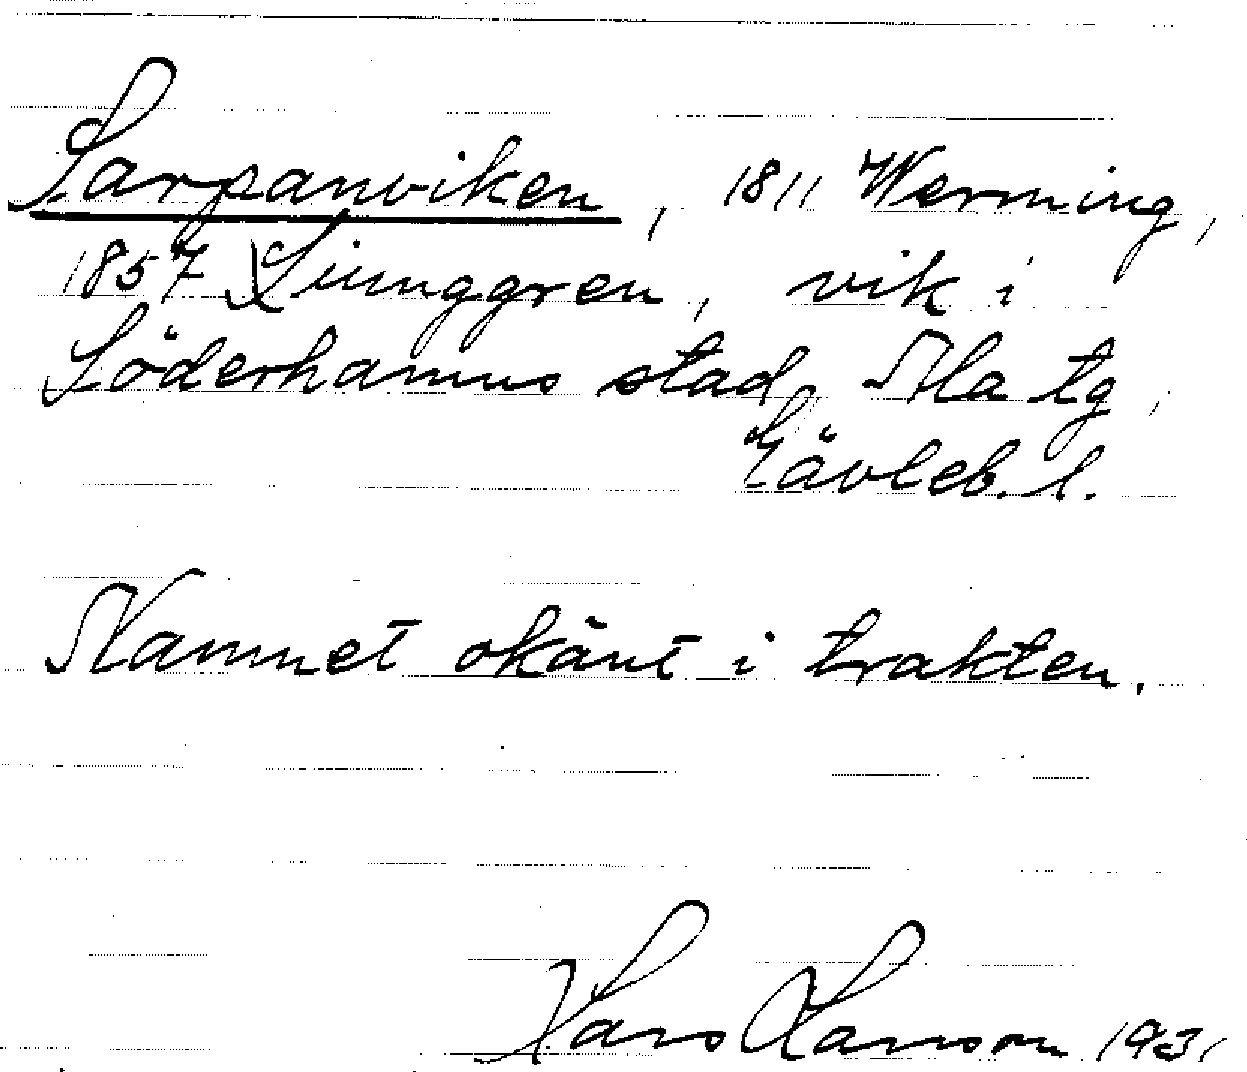 Sarpanviken, 1811 Werming,
1857 Ljunggren, vik i
Söderhamns stad, Ala tg,
Gävleb. l.
Namnet okänt i trakten.
Hans Hanson 1931